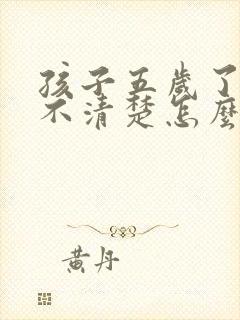 孩子五歲了
不清楚怎麼
黃丹